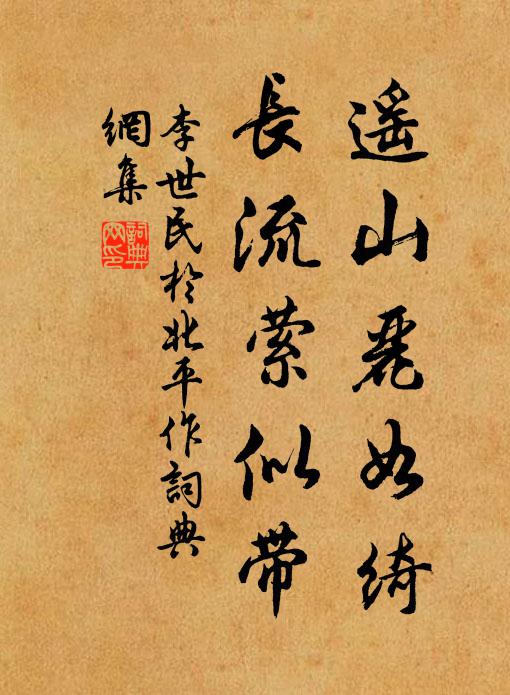 遥山麗如綺
長流縈似帶
李世民於北平作詞典
網集
詞典
网印